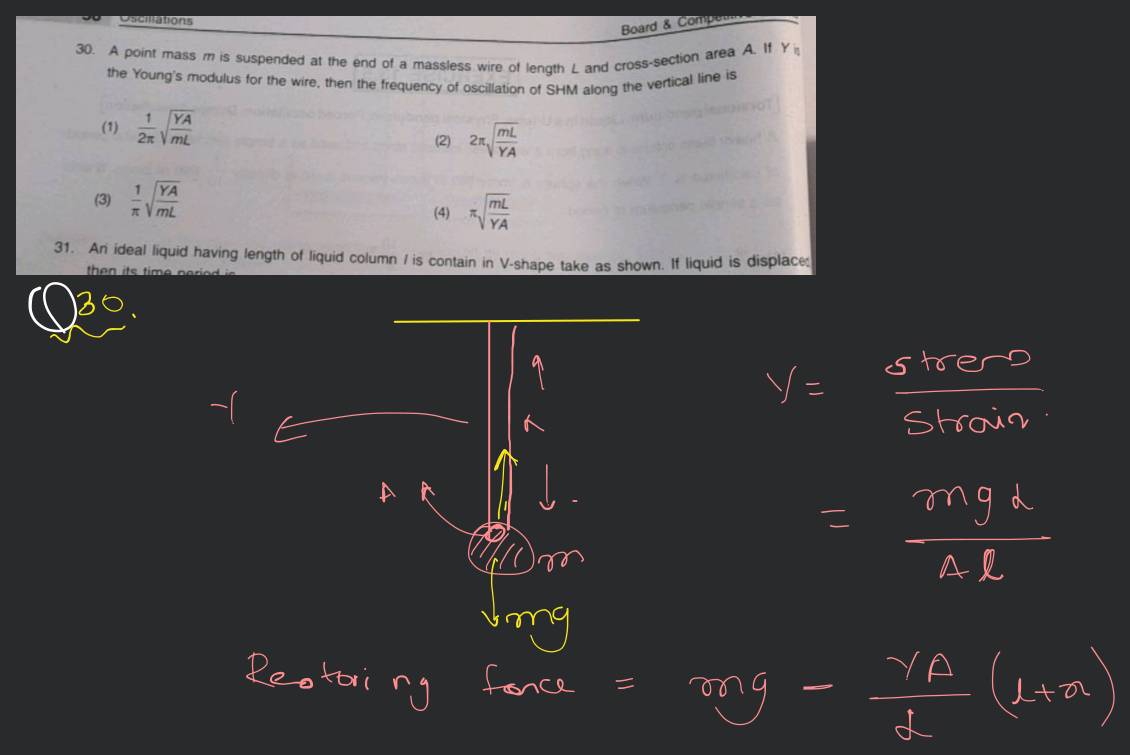 Oscillations
Board &
30. A point mass m is suspended at the end of a massless wire of length L and cross-section area A. If Y is
the Young's modulus for the wire, then the frequency of oscillation of SHM along the vertical line is
(1) 1/2π √(YA/mL)
(2) 2π√(mL/YA)
(3) 1/π √(YA/mL)
(4) π√(mL/YA)
31. An ideal liquid having length of liquid column l is contain in V-shape take as shown. If liquid is displaced
then its time period is
Q30.
Y = stress/Strain
= mgL/Al
A
m
mg
Restoring force = mg - YA/L (l+x)